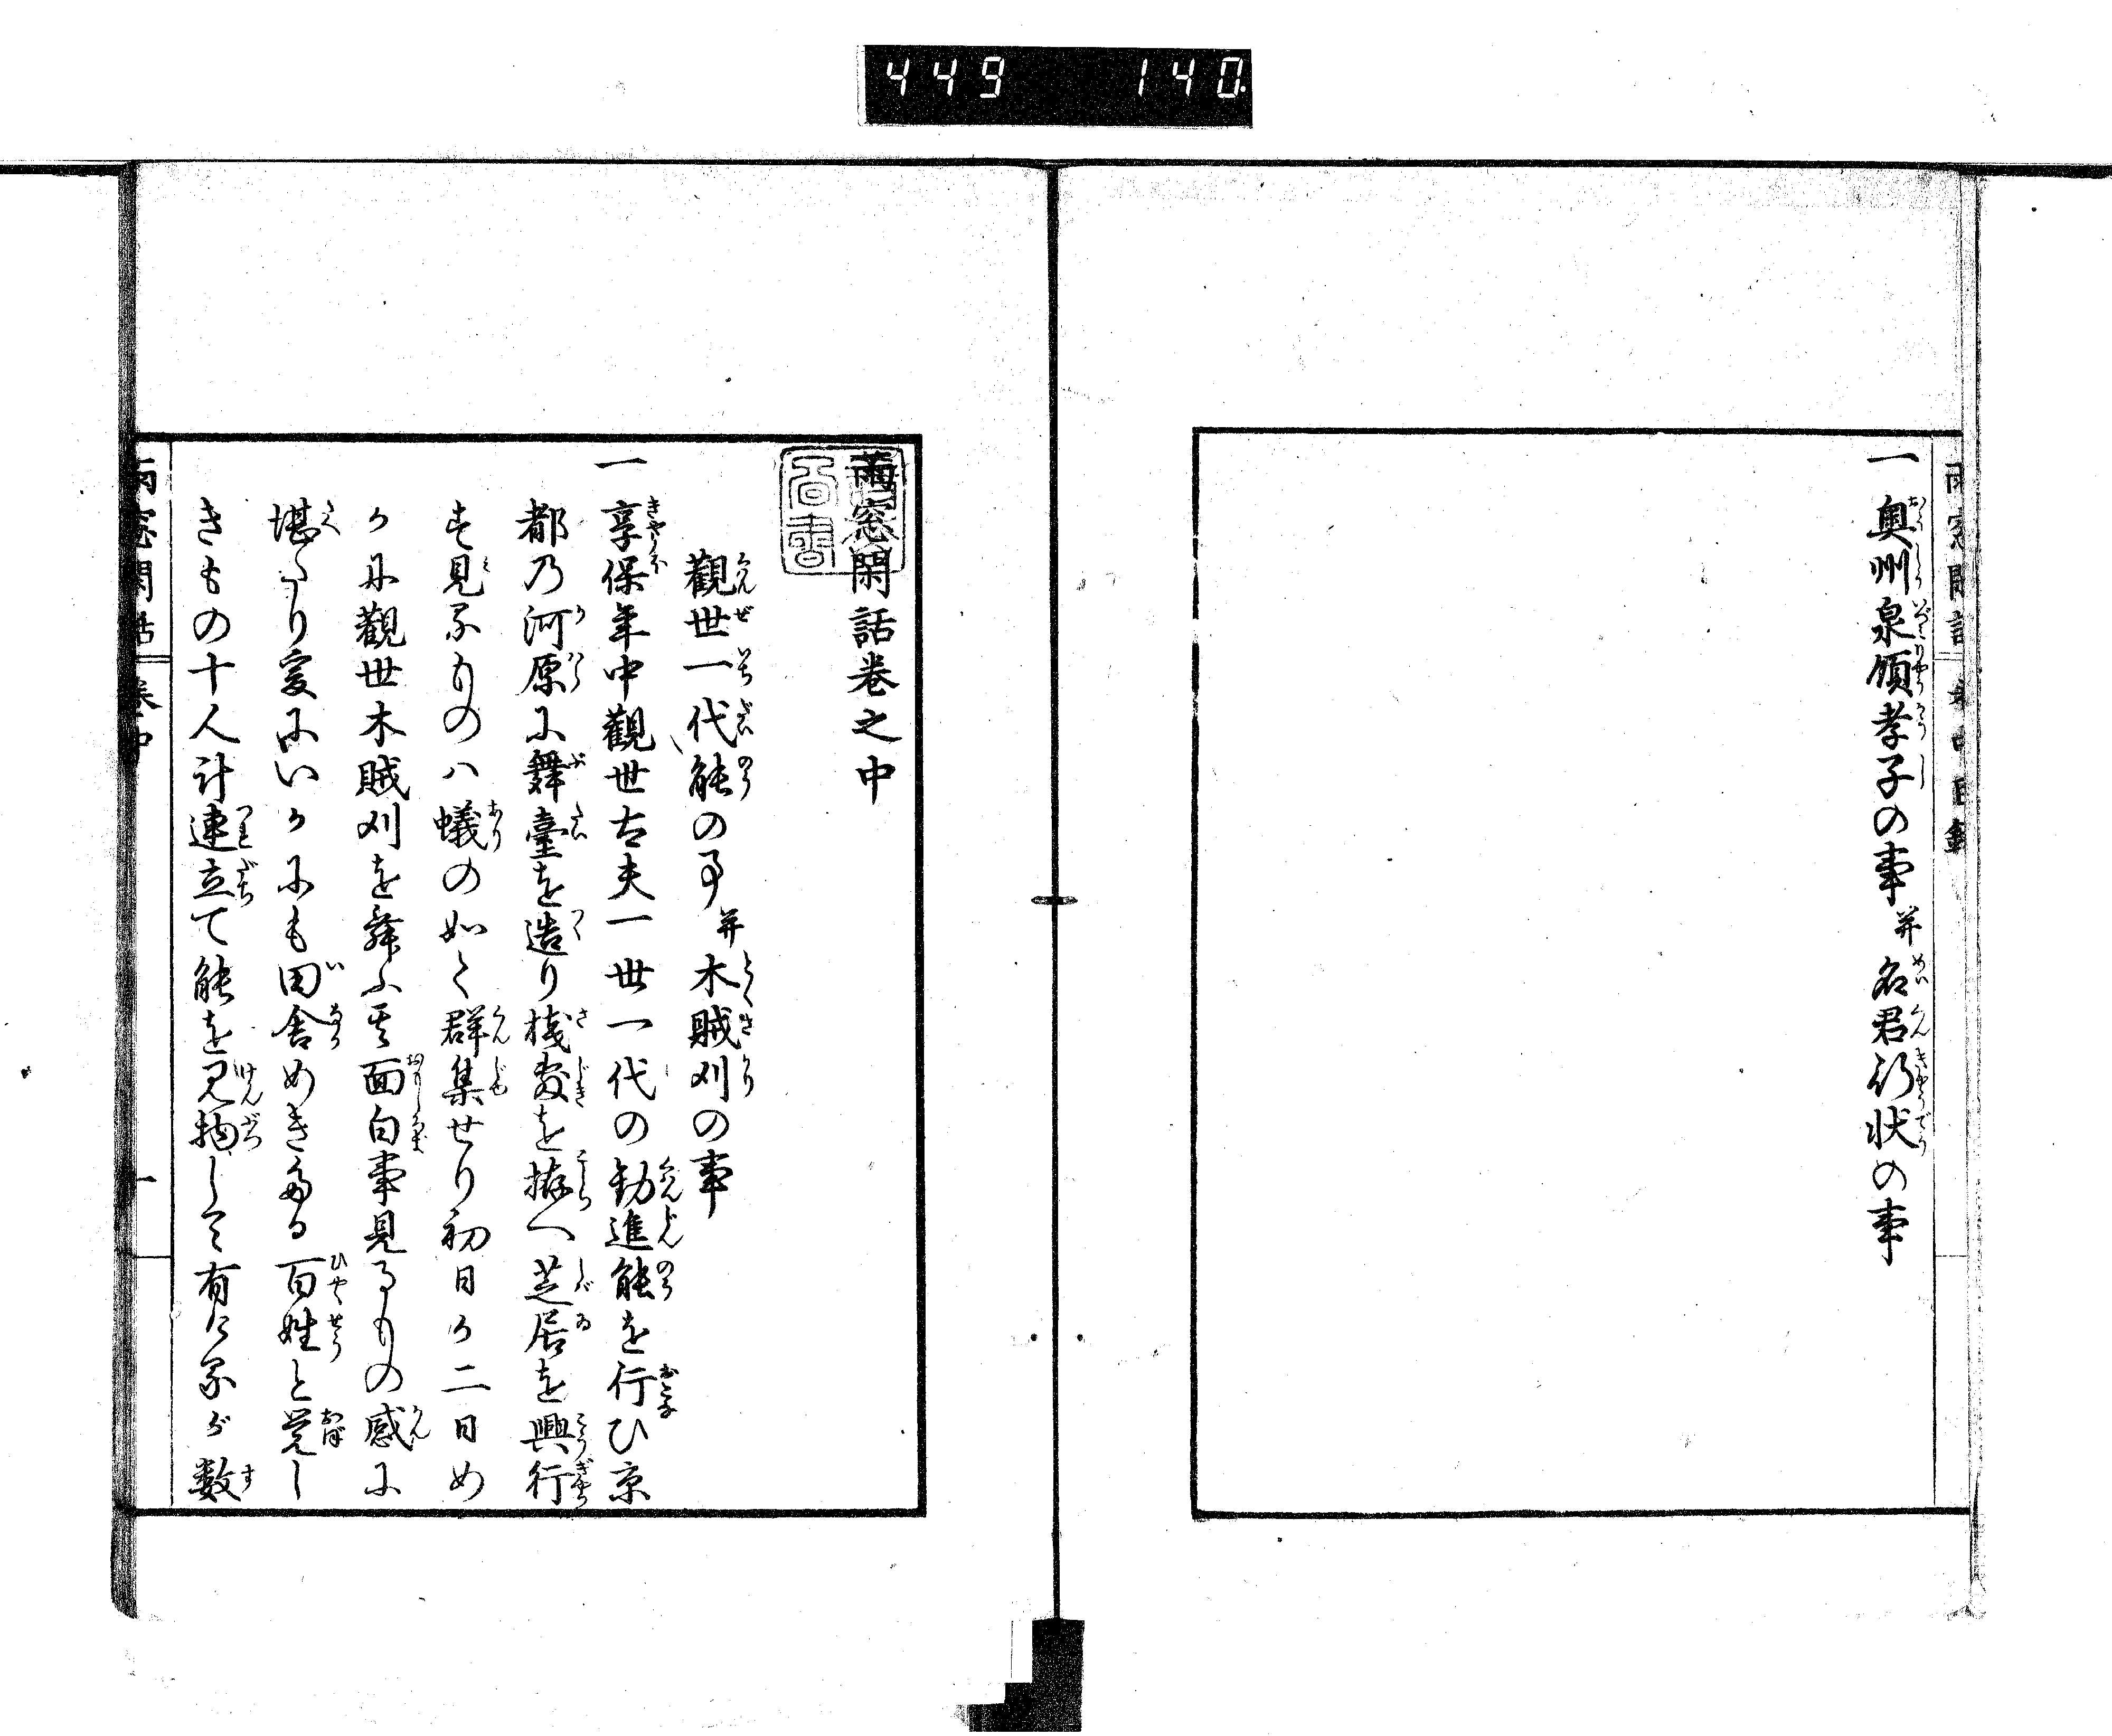 449 140
一奥州泉領孝子の事并名君行状の事
雨窓閑話巻之中
觀世一代能の事并木賊刈の事
一享保年中觀世太夫一世一代の勧進能を行ひ京
都乃河原に舞臺を造り桟敷を拵へ芝居を興行
す見るものハ蟻の如く群集せり初日か二日め
かに觀世木賊刈を舞ふ其面白事見るものの感に
堪たり爰にいかにも田舎めきたる百姓と覚し
きもの十人計連立て能を見物して有けるが数
雨窓閑話 巻中 一